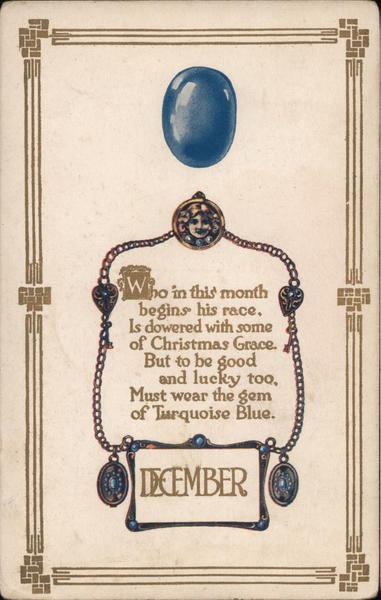 Who in this month
begins his race,
Is dowered with some
of Christmas Grace.
But to be good
and lucky too,
Must wear the gem
of Turquoise Blue.
DECEMBER